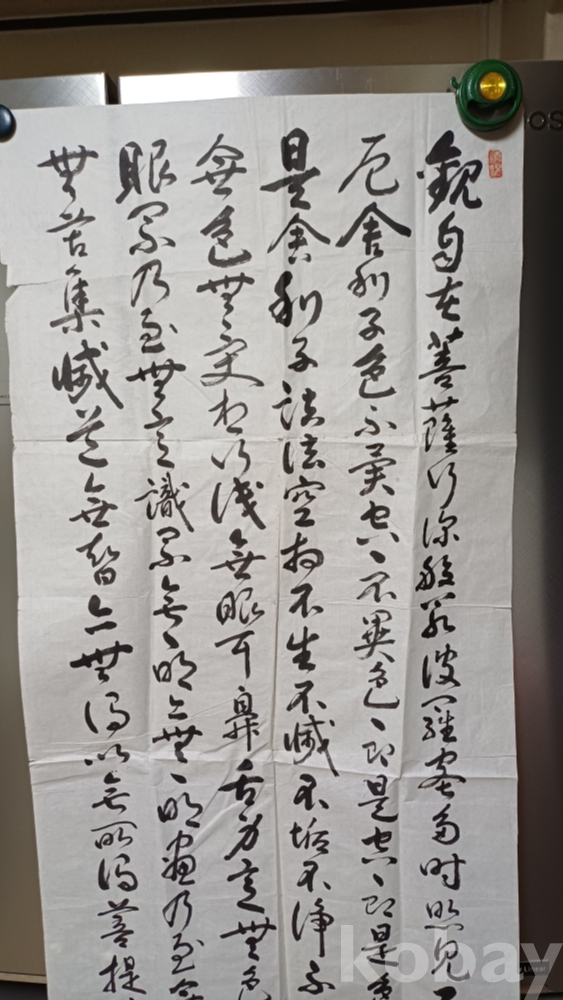 觀自在菩薩行深般若波羅蜜多時照見
厄舍利子色不異空〻不異色〻即是空〻即是色
是舍利子諸法空相不生不滅不垢不淨不
無色無受想行識無眼耳鼻舌身意無色
眼界乃至無意識界無〻明亦無〻明盡乃至無
無苦集滅道無智亦無得以無所得菩提
kobay